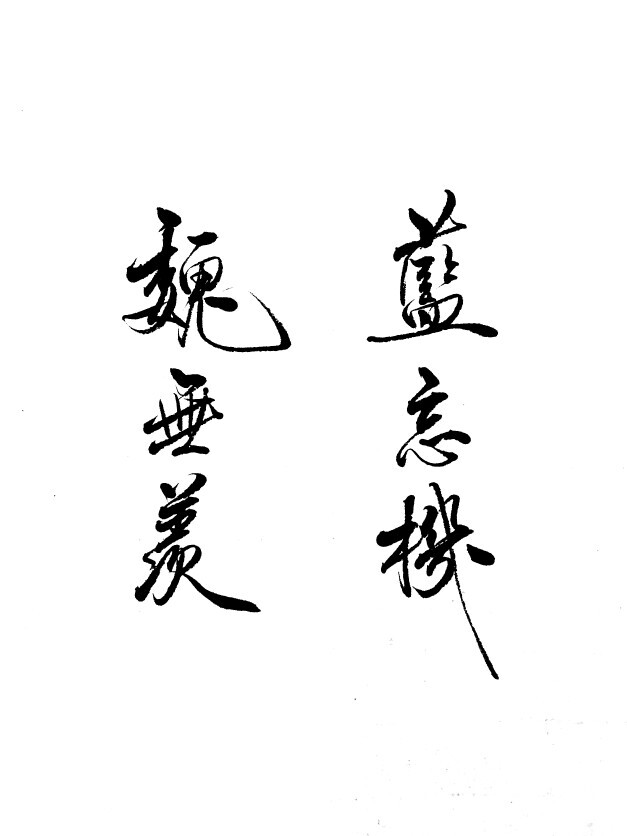 藍忘機
魏無羨